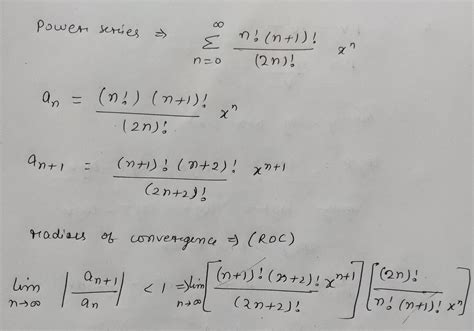 Power series ⇒ ∞ Σ n=0 n!(n+1)! / (2n)! x^n
a_n = (n!) (n+1)! / (2n)! x^n
a_{n+1} = (n+1)! (n+2)! / (2n+2)! x^{n+1}
radius of convergence ⇒ (ROC)
lim n→∞ | a_{n+1} / a_n | < 1 ⇒ lim n→∞ [ (n+1)! (n+2)! x^{n+1} / (2n+2)! ] [ (2n)! / n! (n+1)! x^n ]